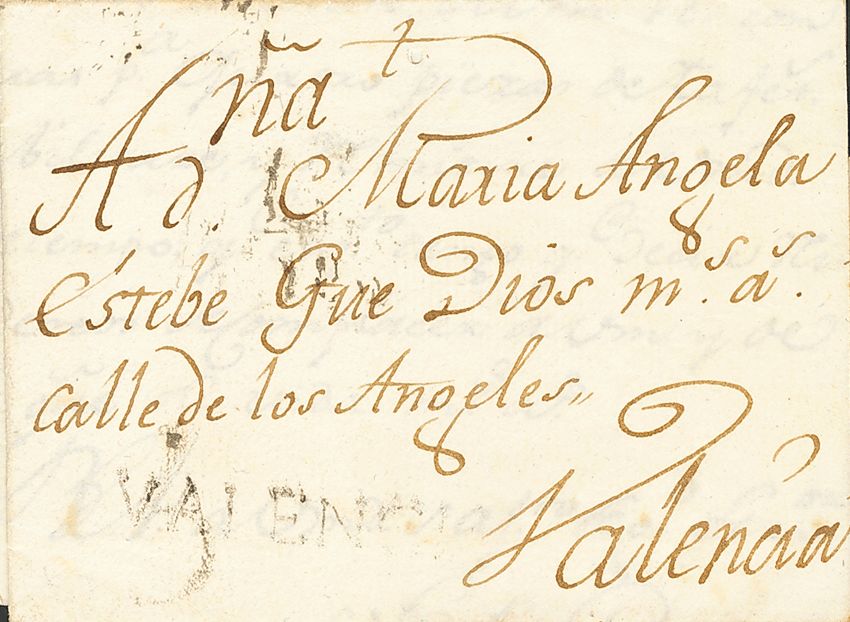 †
A d.ña Maria Angela
Estebe Gue Dios m.s a.s
calle de los Angeles,,
Valencia
VALENC